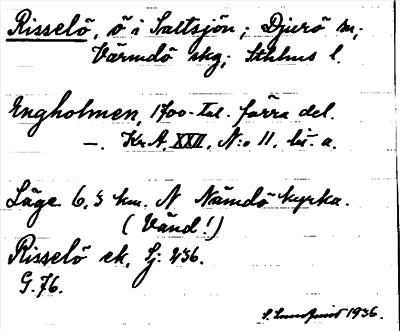 Risselö, ö i Saltsjön; Djurö sn;
Värmdö skg; Sthlms l.
Engholmen, 1700-tal. förra del.
—. Kr.A. XXII. N:o 11. lit. a.
Läge 6,5 km. N Nämdö kyrka.
(Vänd!)
Risselö ek. Lj: 236.
G. 76.
S. Lundquist 1936.